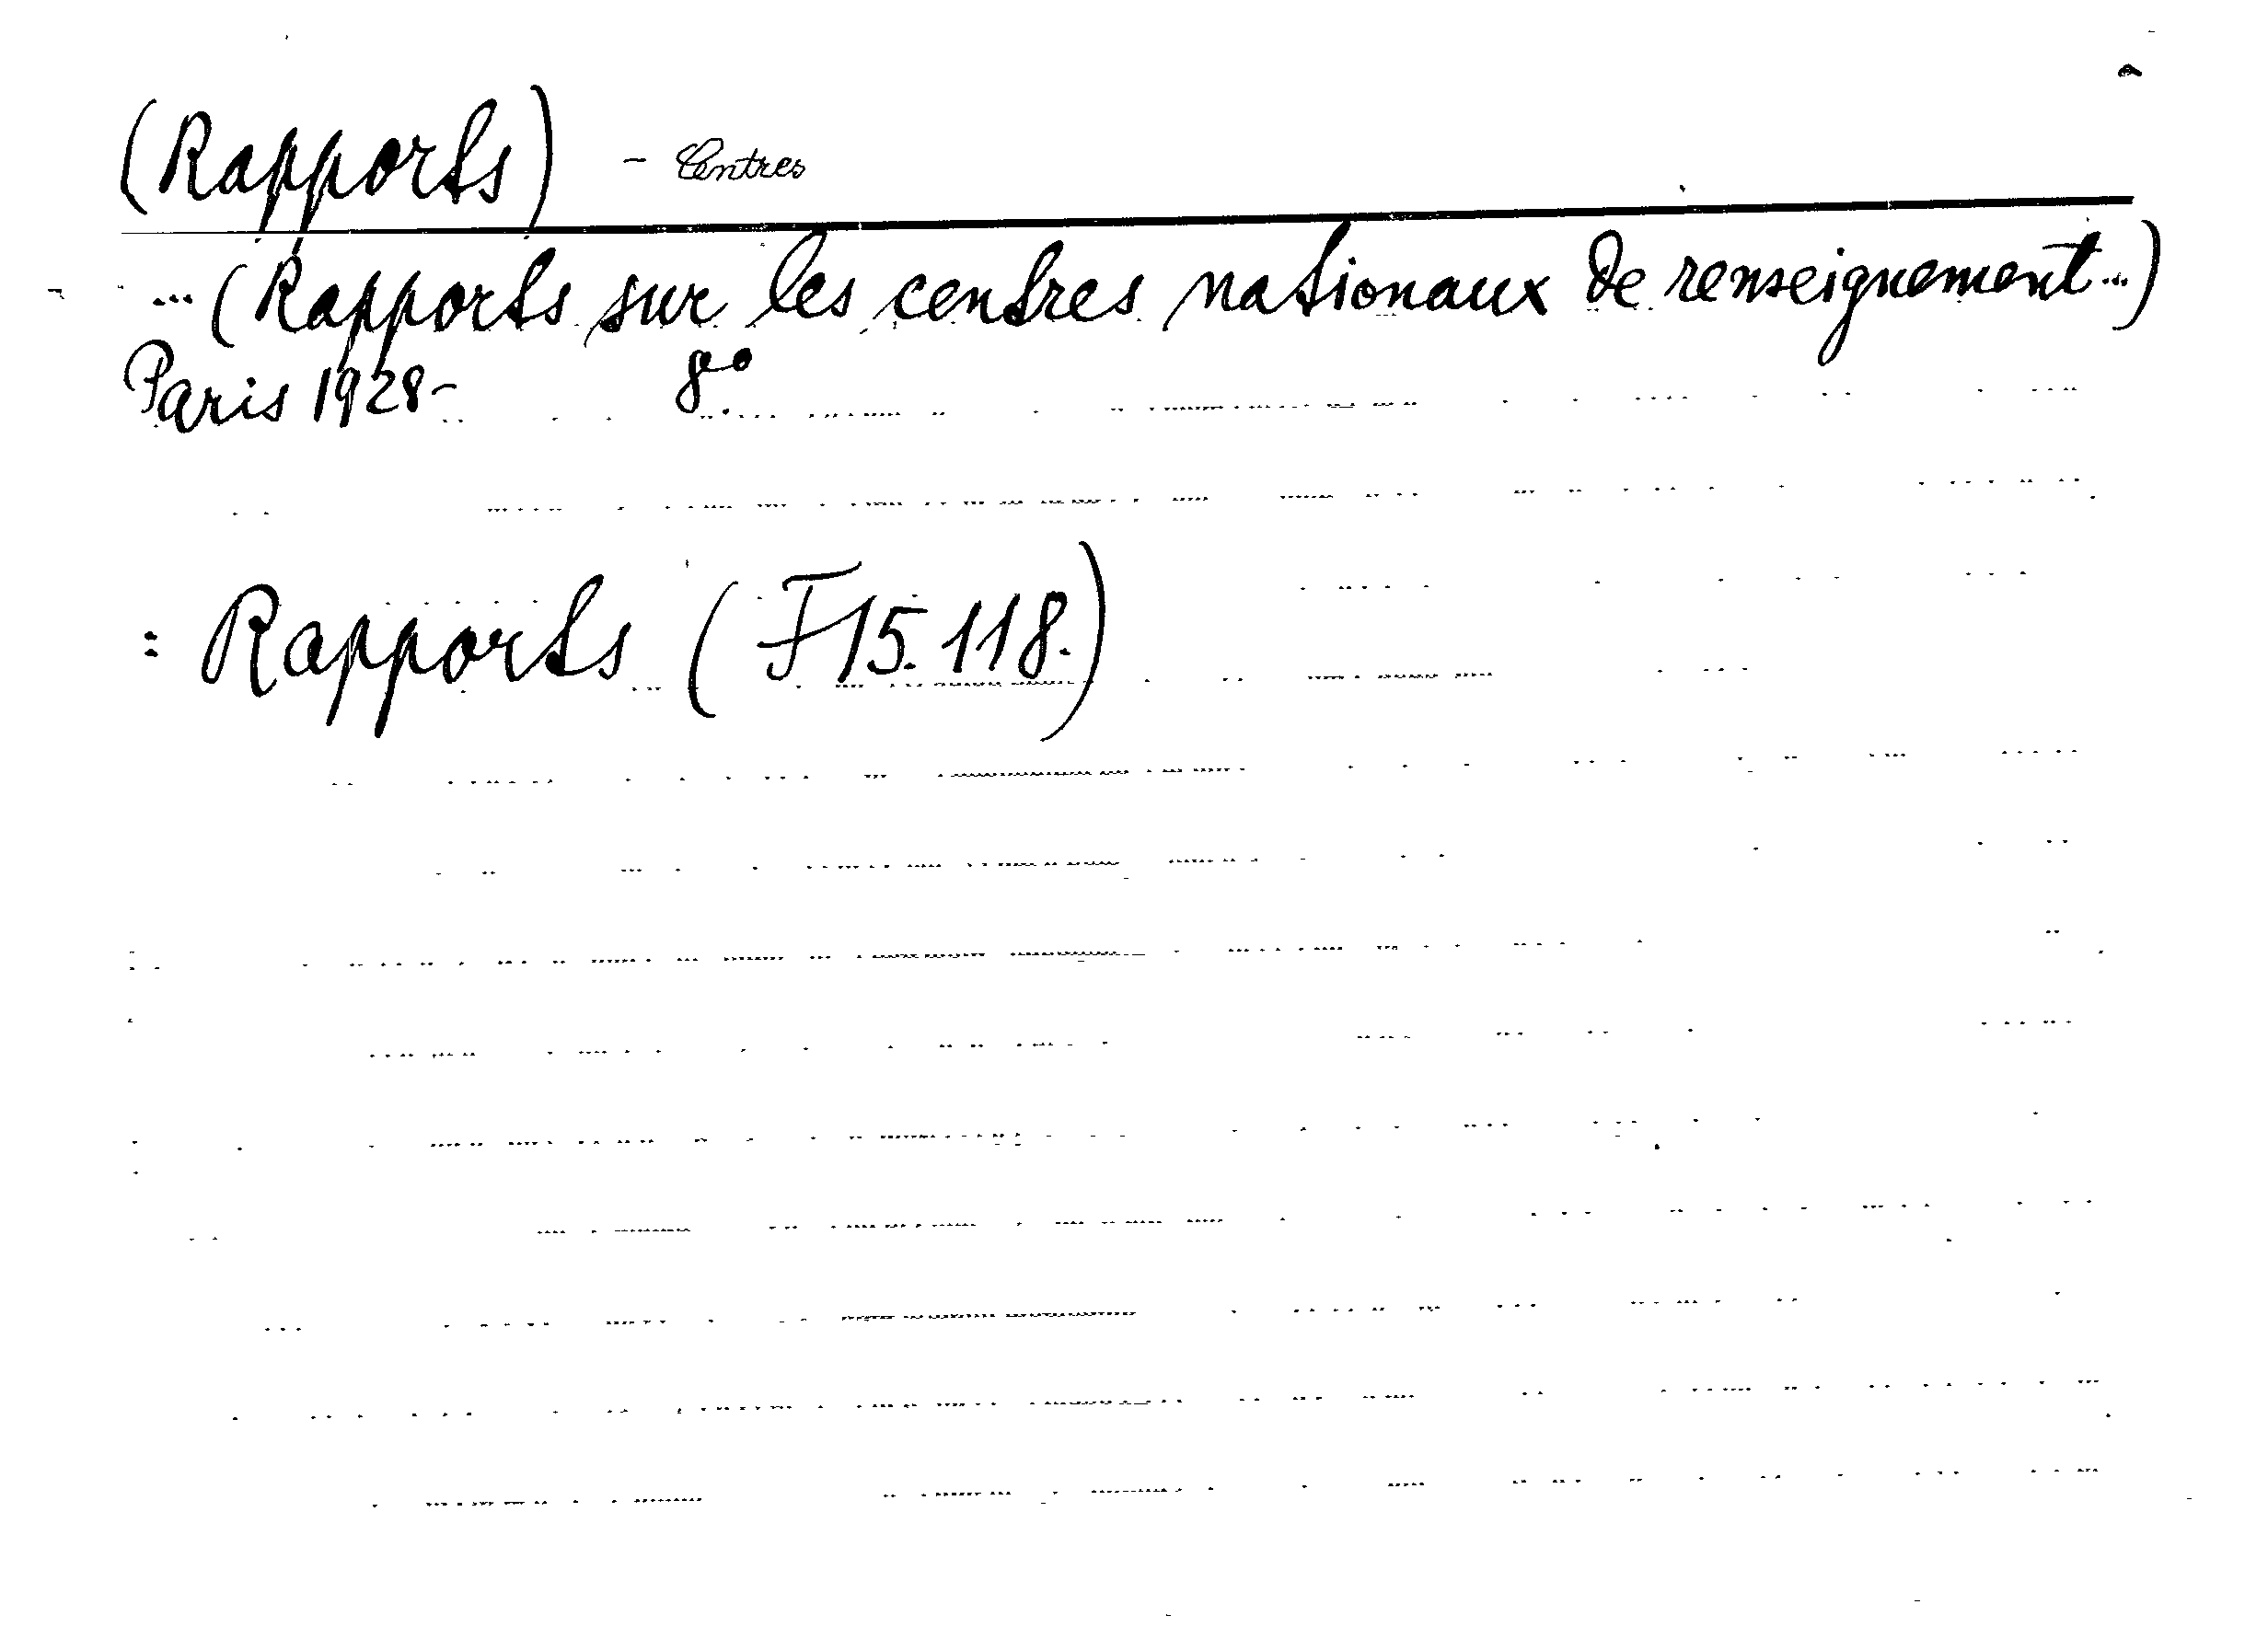 (Rapports) - Centres
... (Rapports sur les centres nationaux de renseignement...)
Paris 1928- 8°
= Rapports (F 15.118.)